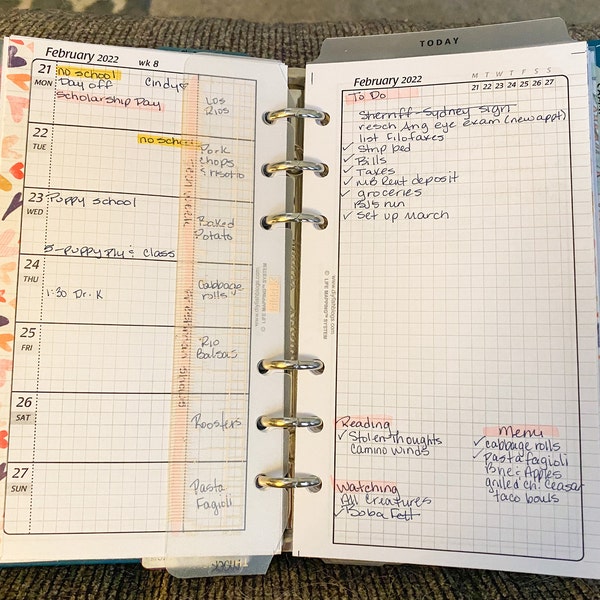 February 2022 wk 8
21
MON
no school
Day off
Cindy♡
Scholarship Day
Los
Rios
22
TUE
no school
Pork
chops
& risotto
23
WED
Puppy school
5-puppy ply & class
Baked
Potato
24
THU
1:30 Dr. K
Cabbage
rolls
25
FRI
Rio
Balsas
26
SAT
Roosters
27
SUN
Pasta
Fagioli
TODAY
February 2022
M T W T F S S
21 22 23 24 25 26 27
To Do
Sherriff-Sydney sign
resch Ang eye exam (new appt)
list Filofaxes
✓ Strip bed
✓ Bills
✓ Taxes
✓ MB Rent deposit
✓ groceries
BJs run
✓ Set up March
© LIFE MAPPING™ SYSTEM
www.diyfishblogs.com
Reading
✓ Stolen Thoughts
Camino Winds
Watching
All Creatures
✓ Boba Fett
Menu
✓ cabbage rolls
✓ Pasta fagioli
Brie & Apples
grilled ch. Ceasar
taco bowls